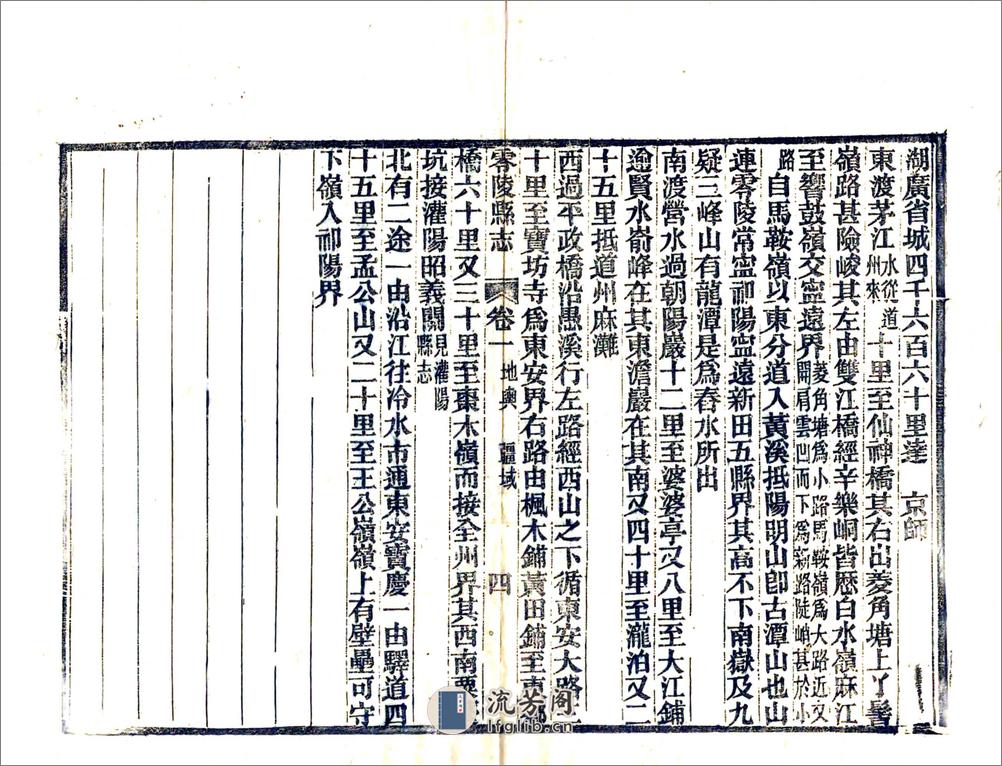 湖廣省城四千六百六十里達　京師
東渡茅江水從道州來十里至仙神橋其右出菱角塘上丫髻
嶺路甚險峻其左由雙江橋經辛樂峒皆歷白水嶺麻江
至響鼓嶺交寧遠界菱角塘爲小路馬鞍嶺爲大路近又開肩雲凹而下爲新路陡峭甚於小
路自馬鞍嶺以東分道入黃溪抵陽明山卽古潭山也山
連零陵常寧祁陽寧遠新田五縣界其高不下南嶽及九
疑三峰山有龍潭是爲舂水所出
南渡營水過朝陽巖十二里至婆婆亭又八里至大江鋪
逾賢水嵛峰在其東澹巖在其南又四十里至瀧泊又二
十五里抵道州麻灘
西過平政橋沿愚溪行左路經西山之下循東安大路
十里至寶坊寺爲東安界右路由楓木鋪黃田鋪至東鄉
零陵縣志　卷一　地輿　疆域　四
橋六十里又三十里至棗木嶺而接全州界其西南
坑接灌陽昭義關見灌陽縣志
北有二途一由沿江往冷水市通東安寶慶一由驛道四
十五里至孟公山又二十里至王公嶺嶺上有壁壘可守
下嶺入祁陽界
流芳阁
lfglib.cn